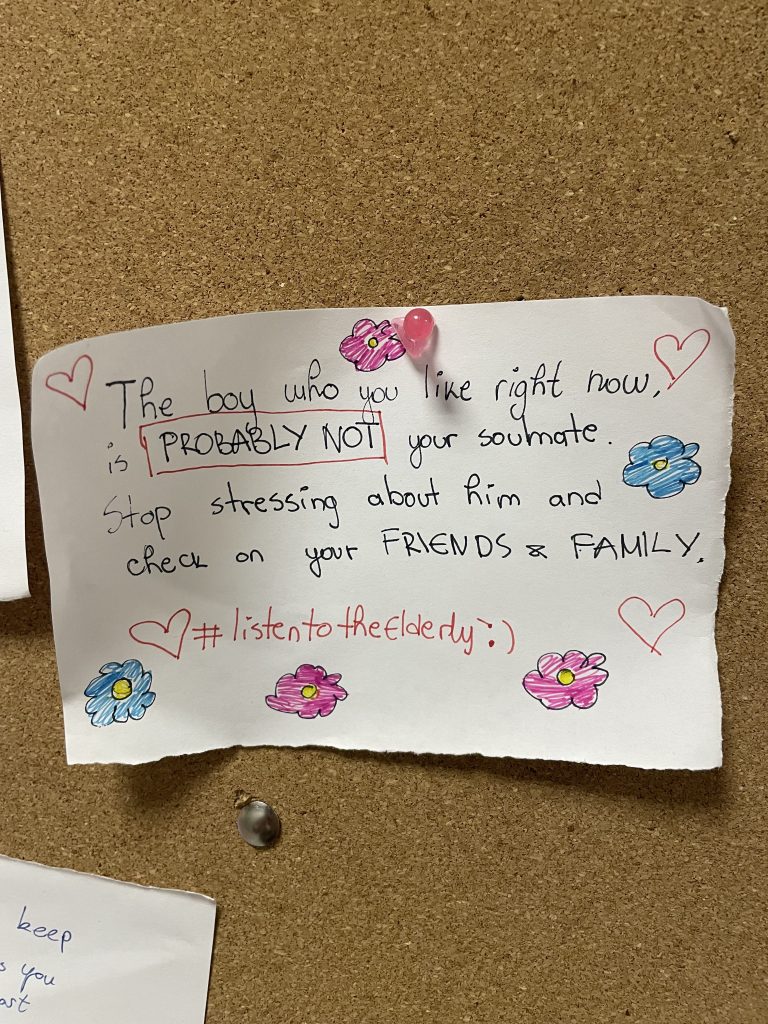 The boy who you like right now,
is PROBABLY NOT your soulmate.
Stop stressing about him and
check on your FRIENDS & FAMILY.
#listentotheElderly :)
keep
you